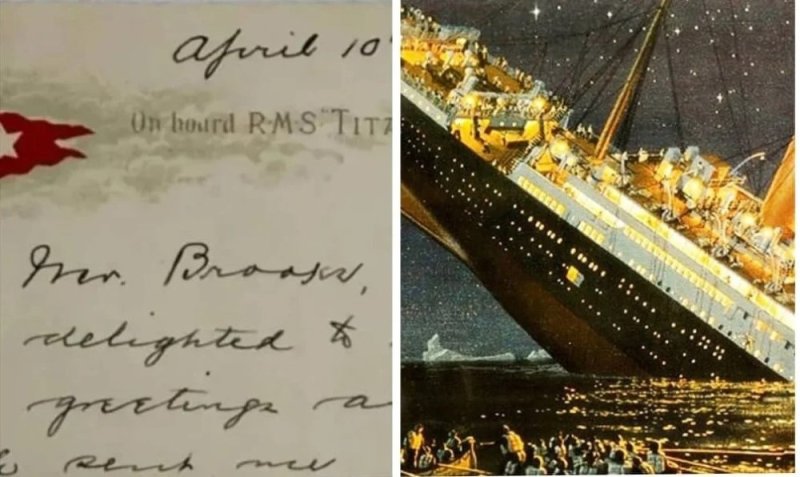 April 10
On board R.M.S "TITA
Mr. Brooks,
delighted to
greetings a
sent me